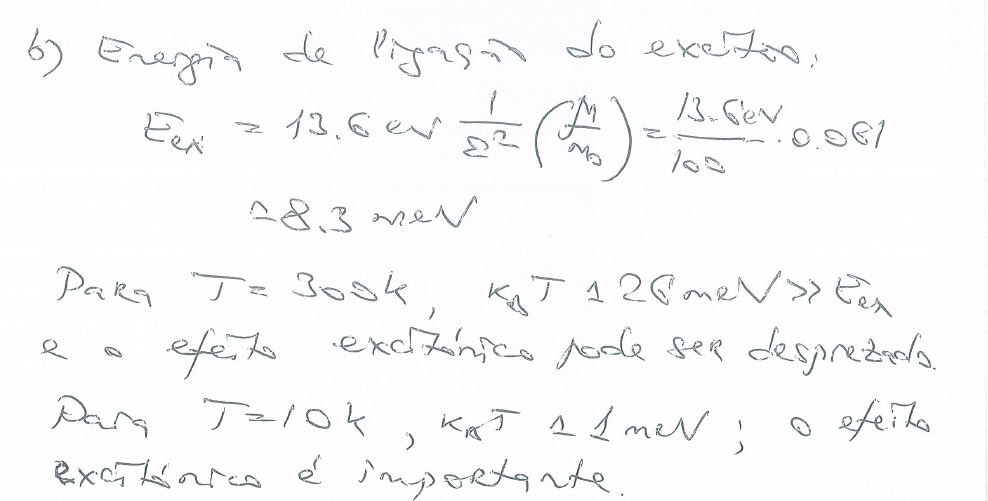 b) Energia de ligação do exciton.
E_ex = 13.6 eV 1/ε² (M/m₀) = 13.6 eV/100 · 0.061
~ 8.3 meV
Para T = 300K, K_BT ~ 26 meV >> E_ex
e o efeito excitônico pode ser desprezado.
Para T = 10K, K_BT ~ 1 meV; o efeito
excitônico é importante.